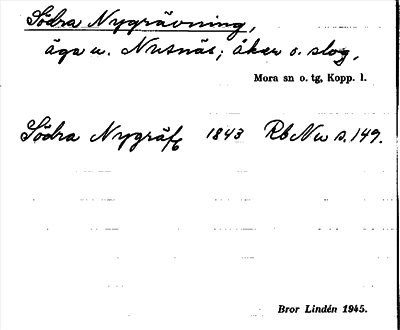 Södra Nygrävning,
äga u. Nusnäs; åker o. slog,
Mora sn o. tg, Kopp. l.
Södra Nygräfn 1843 Rb Nu s. 149.
Bror Lindén 1945.